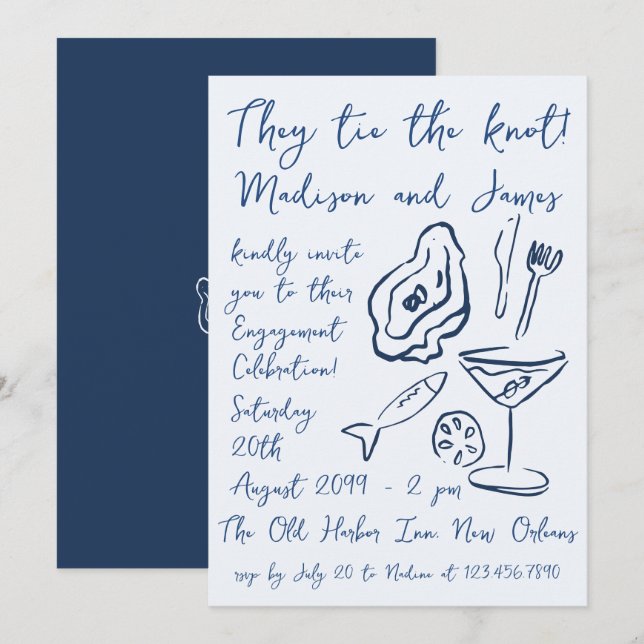 They tie the knot!
Madison and James
kindly invite
you to their
Engagement
Celebration!
Saturday
20th
August 2099 - 2 pm
The Old Harbor Inn. New Orleans
rsvp by July 20 to Nadine at 123.456.7890